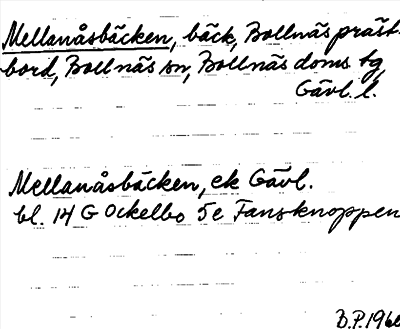 Mellanåsbäcken, bäck, Bollnäs präst-
bord, Bollnäs sn, Bollnäs doms. tg,
Gävl. l.
Mellanåsbäcken, ek Gävl.
bl. 14 G Ockelbo 5e Fansknoppen
B.P.